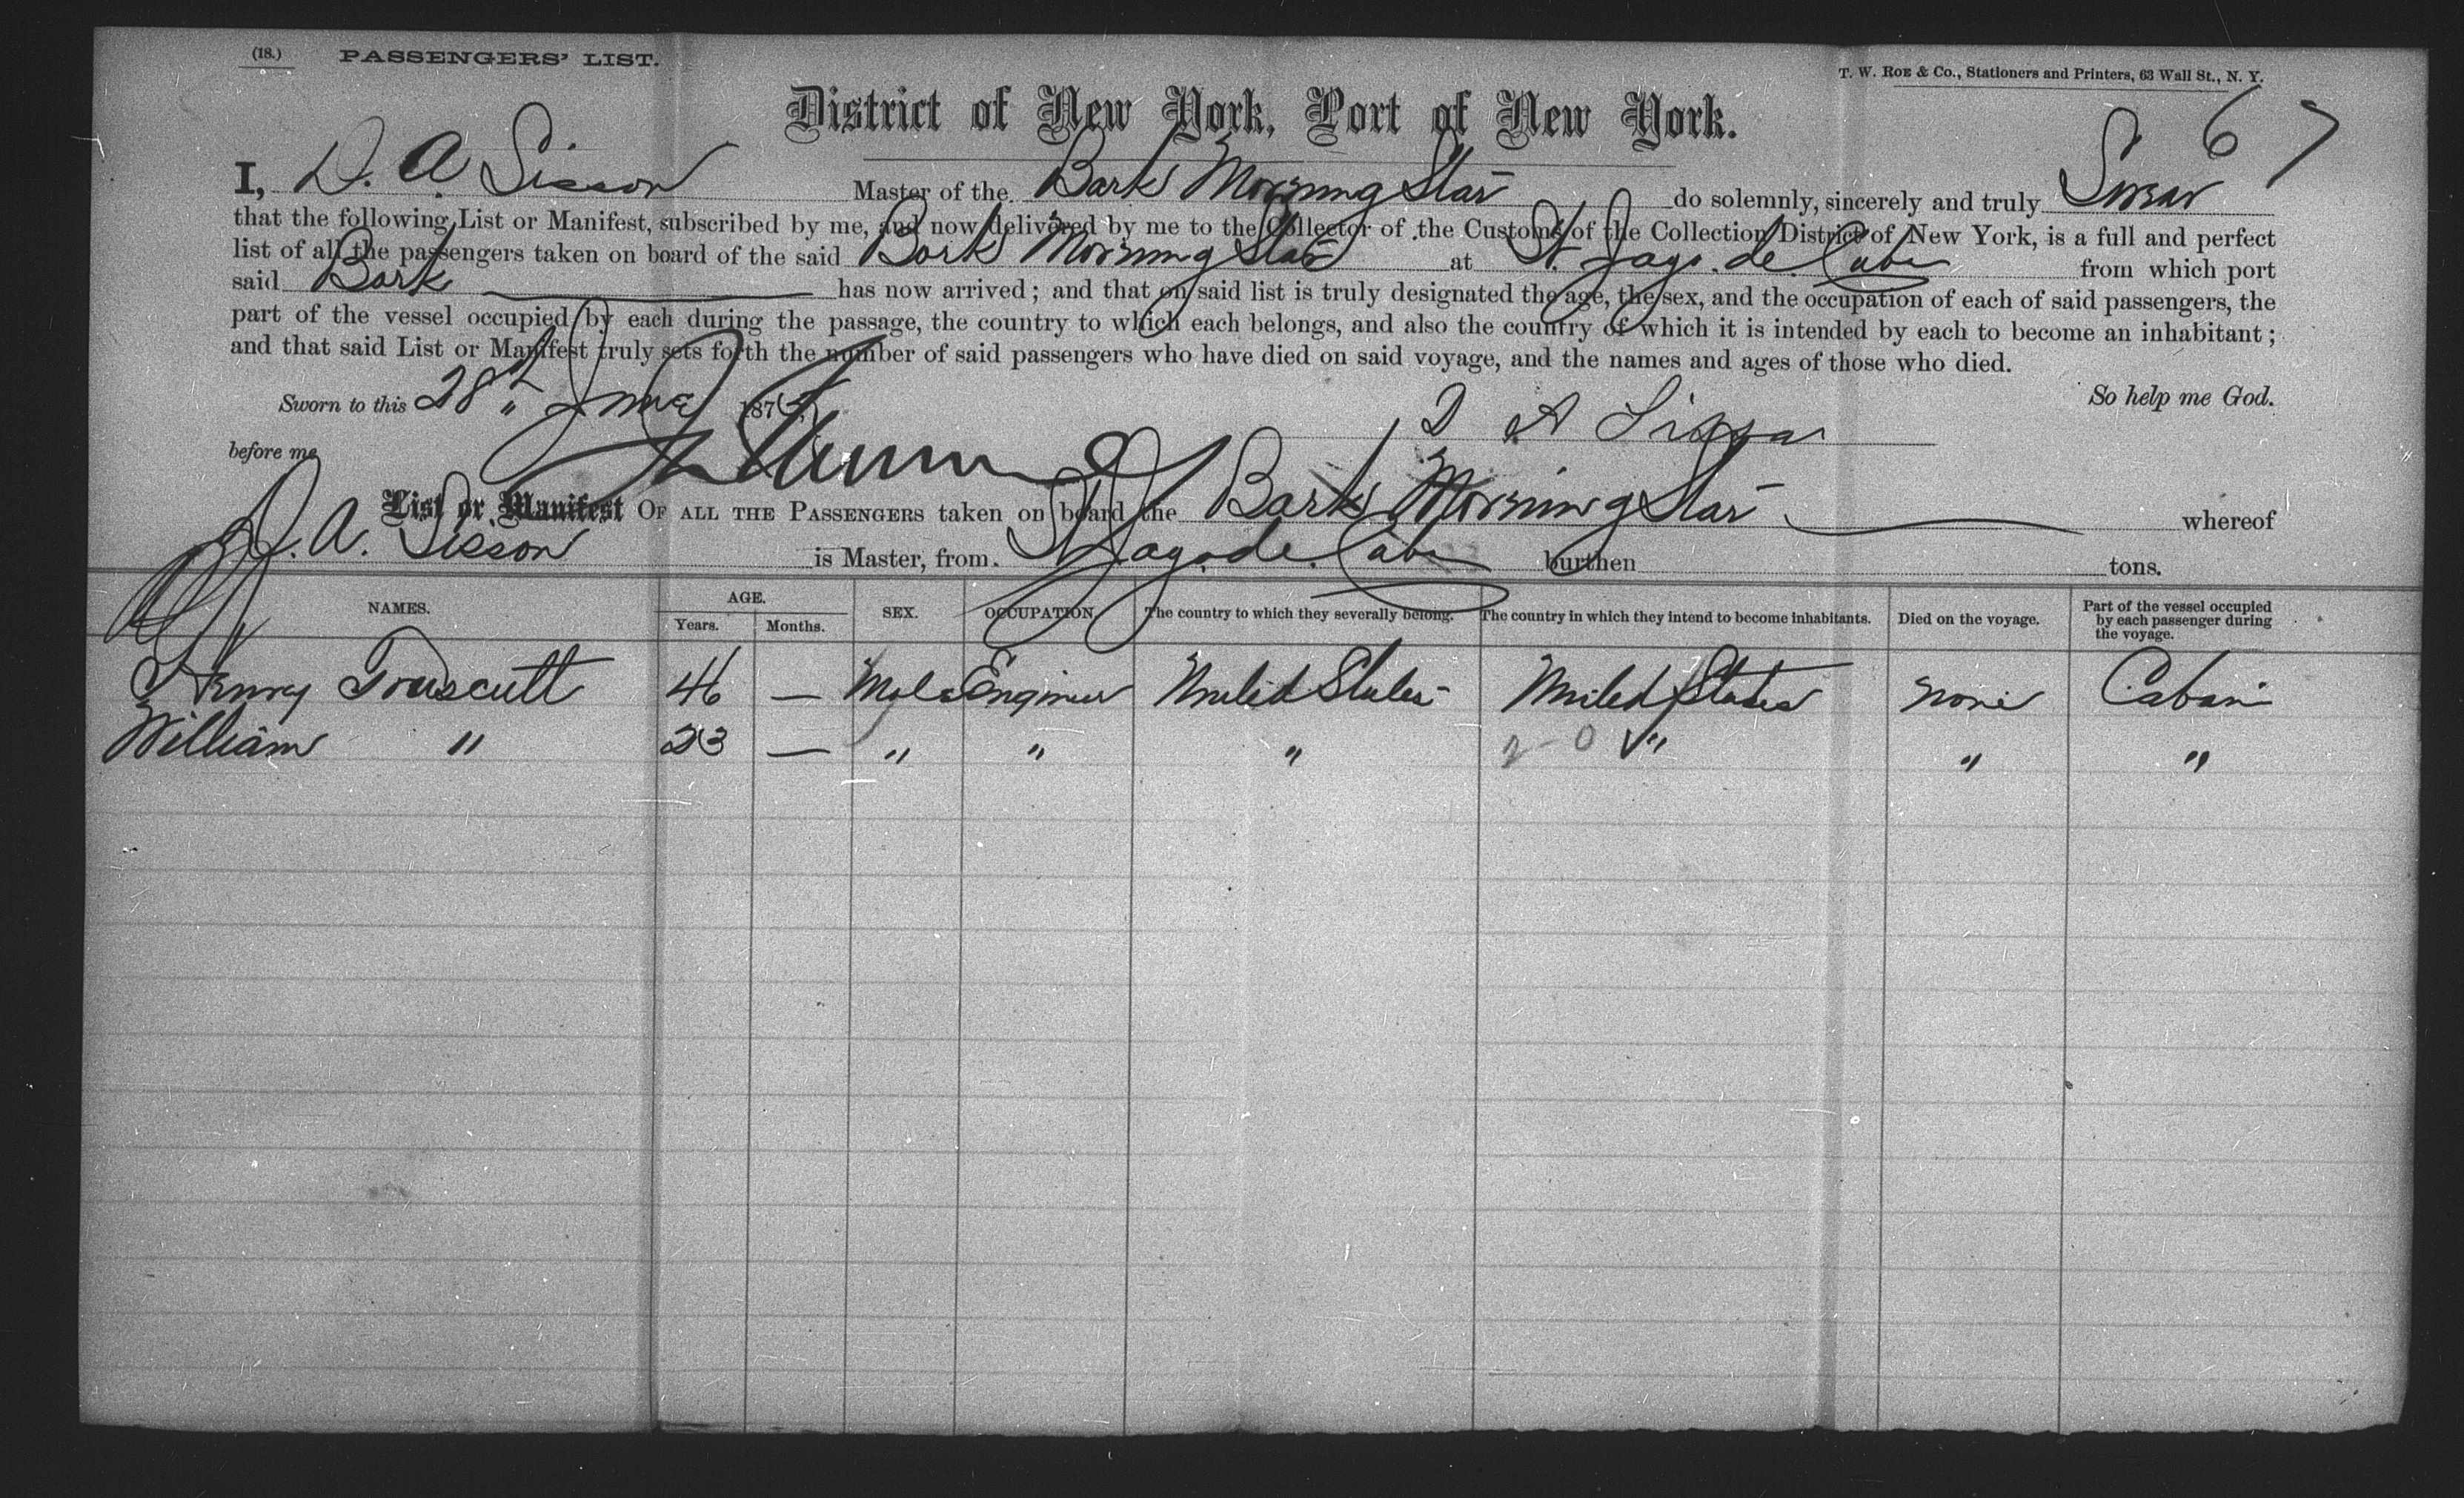 (18.) PASSENGERS' LIST.
T. W. ROE & Co., Stationers and Printers, 63 Wall St., N. Y.
District of New York, Port of New York.
67
I, D. A. Sisson Master of the Bark Morning Star do solemnly, sincerely and truly Swear
that the following List or Manifest, subscribed by me, and now delivered by me to the Collector of the Customs of the Collection District of New York, is a full and perfect
list of all the passengers taken on board of the said Bark Morning Star at St. Jago. de. Cuba from which port
said Bark has now arrived; and that on said list is truly designated the age, the sex, and the occupation of each of said passengers, the
part of the vessel occupied by each during the passage, the country to which each belongs, and also the country of which it is intended by each to become an inhabitant;
and that said List or Manifest truly sets forth the number of said passengers who have died on said voyage, and the names and ages of those who died.
Sworn to this 28th June 187 So help me God.
before me D A Sisson
List or Manifest OF ALL THE PASSENGERS taken on board the Bark Morning Star whereof
D. A. Sisson is Master, from St Jago. de. Cuba burthen tons.
NAMES. AGE. Years. Months. SEX. OCCUPATION. The country to which they severally belong. The country in which they intend to become inhabitants. Died on the voyage. Part of the vessel occupied by each passenger during the voyage.
Henry Truscutt 46 — Male Engineer United States United States none Cabin
William " 23 — " " " 2-0 " " "